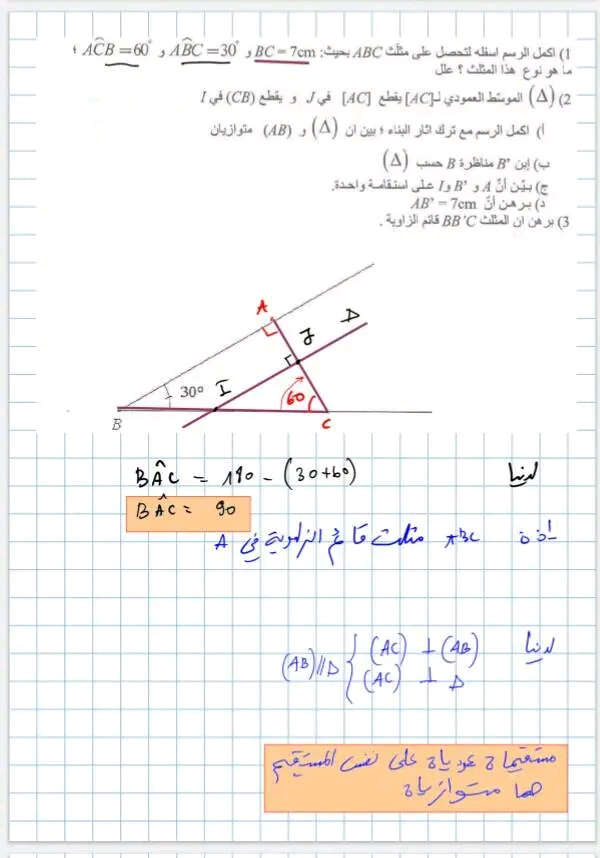 1) اكمل الرسم اسفله لتحصل على مثلث ABC بحيث: BC = 7cm و AB̂C = 30° و AĈB = 60° ؛
ما هو نوع هذا المثلث ؟ علل
2) (Δ) الموسّط العمودي لـ[AC] يقطع [AC] في J و يقطع (CB) في I
أ) اكمل الرسم مع ترك اثار البناء ؛ بين ان (Δ) و (AB) متوازيان
ب) إبن B’ مناظرة B حسب (Δ)
ج) بيّن أنّ A و B’ و I على استقامة واحدة.
د) برهن أنّ AB’ = 7cm
3) برهن ان المثلث BB’C قائم الزاوية .
A
J
Δ
I
30°
60
B
C
لدينا BÂC = 180 - (30+60)
BÂC = 90
إذن ABC مثلث قائم الزاوية في A
لدينا (AC) ⊥ (AB)
(AC) ⊥ Δ
(AB) // Δ
مستقيمان عموديان على نفس المستقيم
هما متوازيان